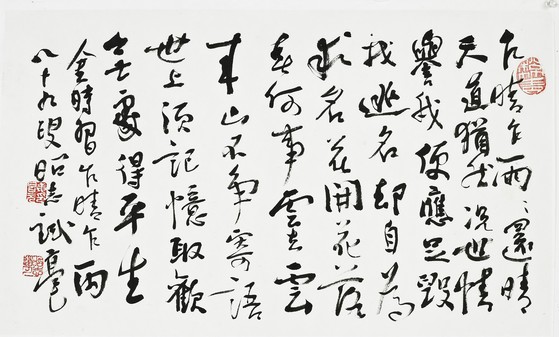 乍晴乍雨〻還晴
天道猶然況世情
譽我便應是毀
我逃名却自為
求名花開花落
春何事雲去雲
來山不爭寄語
世上須記憶取歡
無處得平生
金時習乍晴乍雨
八十九叟 試毫